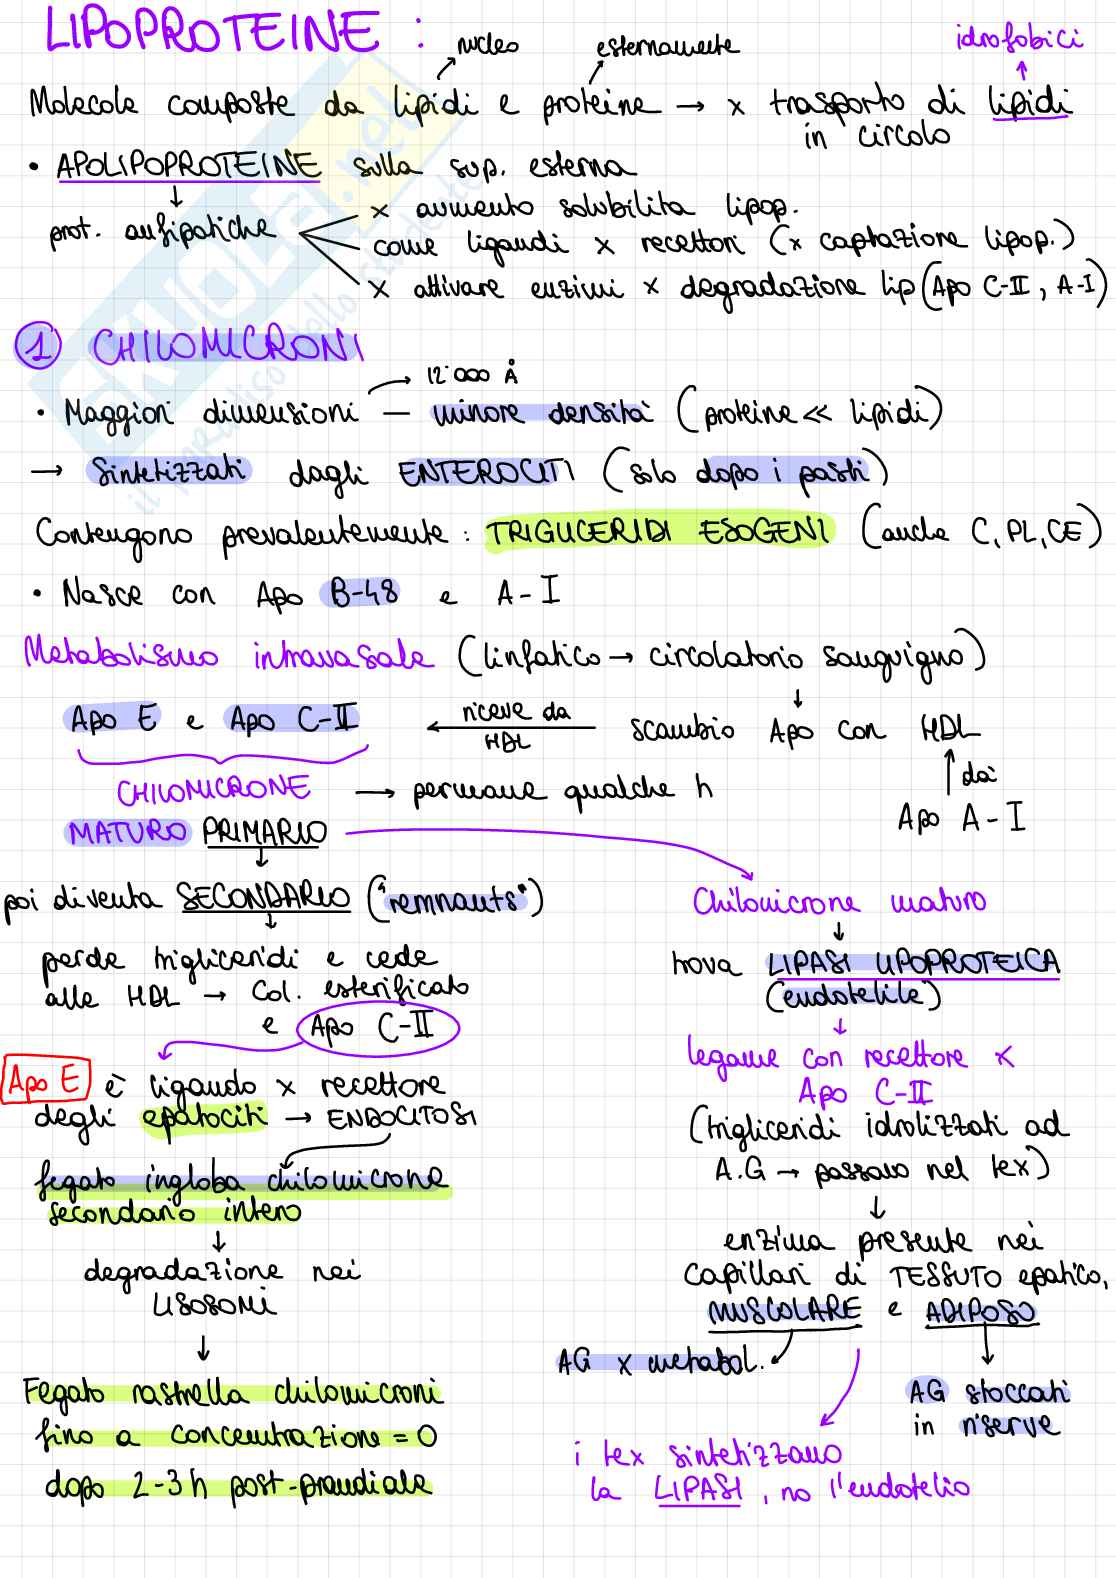 LIPOPROTEINE :
nucleo
esternamente
idrofobici
Molecole composte da lipidi e proteine → x trasporto di lipidi
in circolo
• APOLIPOPROTEINE sulla sup. esterna
prot. anfipatiche
x aumento solubilità lipop.
come ligandi x recettori (x captazione lipop.)
x attivare enzimi x degradazione lip (Apo C-II, A-I)
SKUOLA.net
il paradiso dello studente
1 CHILOMICRONI
12'000 Å
• Maggiori dimensioni — minore densità (proteine << lipidi)
→ Sintetizzati dagli ENTEROCITI (solo dopo i pasti)
Contengono prevalentemente : TRIGLICERIDI ESOGENI (anche C, PL, CE)
• Nasce con Apo B-48 e A-I
Metabolismo intravasale (linfatico → circolatorio sanguigno)
Apo E e Apo C-II ← riceve da HDL scambio Apo con HDL
dà
Apo A-I
CHILOMICRONE → permane qualche h
MATURO PRIMARIO
poi diventa SECONDARIO ("remnants")
perde trigliceridi e cede
alle HDL → Col. esterificato
e Apo C-II
Apo E è ligando x recettore
degli epatociti → ENDOCITOSI
fegato ingloba chilomicrone
secondario intero
↓
degradazione nei
LISOSOMI
↓
Fegato rastrella chilomicroni
fino a concentrazione = 0
dopo 2-3 h post-prandiale
Chilomicrone maturo
↓
trova LIPASI LIPOPROTEICA
(endotelile)
↓
legame con recettore x
Apo C-II
(trigliceridi idrolizzati ad
A.G → passano nel tex)
↓
enzima presente nei
capillari di TESSUTO epatico,
MUSCOLARE e ADIPOSO
AG x metabol.
AG stoccati
in riserve
i tex sintetizzano
la LIPASI, no l'endotelio